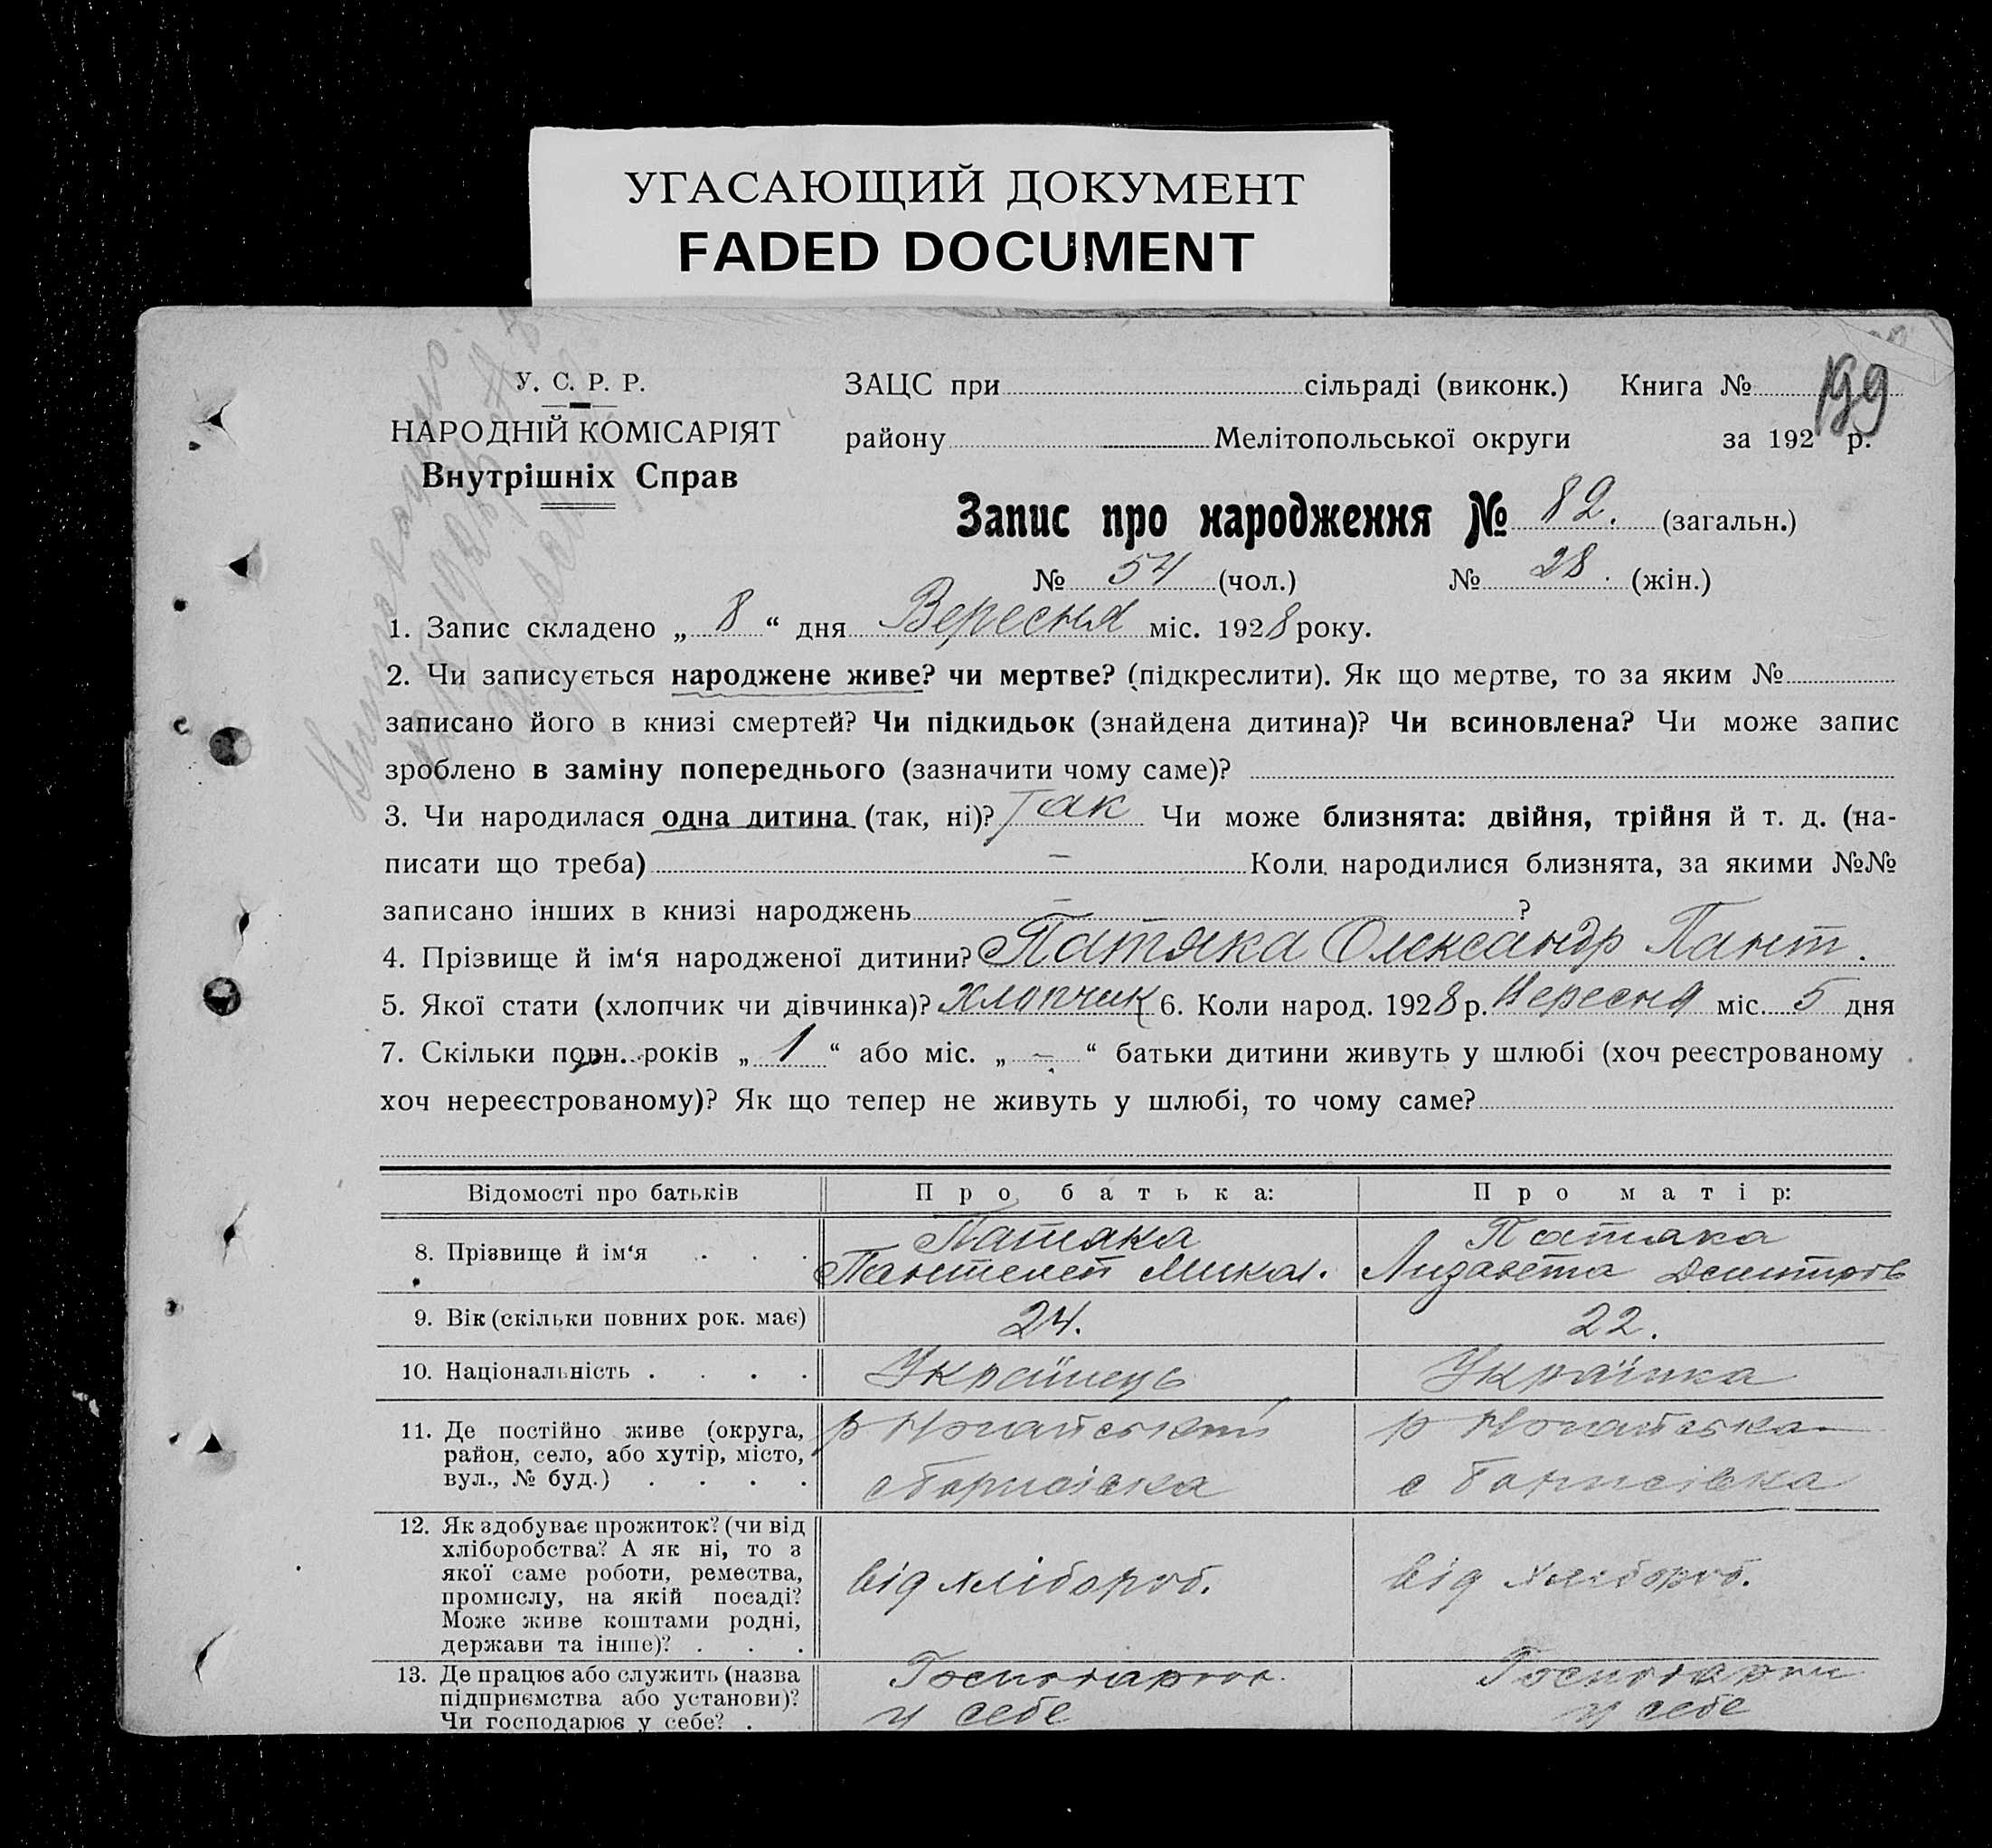 УГАСАЮЩИЙ ДОКУМЕНТ
FADED DOCUMENT
199
У. С. Р. Р.
НАРОДНІЙ КОМІСАРІЯТ
Внутрішніх Справ
ЗАЦС при сільраді (виконк.) Книга №
району Мелітопольської округи за 192 р.
Запис про народження № 82. (загальн.)
№ 54 (чол.) № 28. (жін.)
1. Запис складено „ 8 “ дня Вересня міс. 1928 року.
2. Чи записується народжене живе? чи мертве? (підкреслити). Як що мертве, то за яким №
записано його в книзі смертей? Чи підкидьок (знайдена дитина)? Чи всиновлена? Чи може запис
зроблено в заміну попереднього (зазначити чому саме)?
3. Чи народилася одна дитина (так, ні)? Так Чи може близнята: двійня, трійня й т. д. (на-
писати що треба) — Коли народилися близнята, за якими №№
записано інших в книзі народжень — ?
4. Прізвище й ім‘я народженої дитини? Патяка Олександр Пант.
5. Якої стати (хлопчик чи дівчинка)? Хлопчик 6. Коли народ. 1928 р. Вересня міс. 5 дня
7. Скільки повн. років „ 1 “ або міс. „ – “ батьки дитини живуть у шлюбі (хоч реєстрованому
хоч нереєстрованому)? Як що тепер не живуть у шлюбі, то чому саме?
Відомості про батьків Про батька: Про матір:
8. Прізвище й ім‘я . . . Патяка Патяка
Пантелей Микол. Лизавета Дмитров
9. Вік (скільки повних рок. має) 24. 22.
10. Національність . . . . Українець Українка
11. Де постійно живе (округа, р Ногайський р Ногайська
район, село, або хутір, місто,
вул., № буд.) . . . . с Борисівка с Борисівка
12. Як здобуває прожиток? (чи від
хліборобства? А як ні, то з
якої саме роботи, ремества, від хлібороб. від хлібороб.
промислу, на якій посаді?
Може живе коштами родні,
держави та інше)? . . .
13. Де працює або служить (назва
підприємства або установи)?
Чи господарює у себе? . у себе у себе